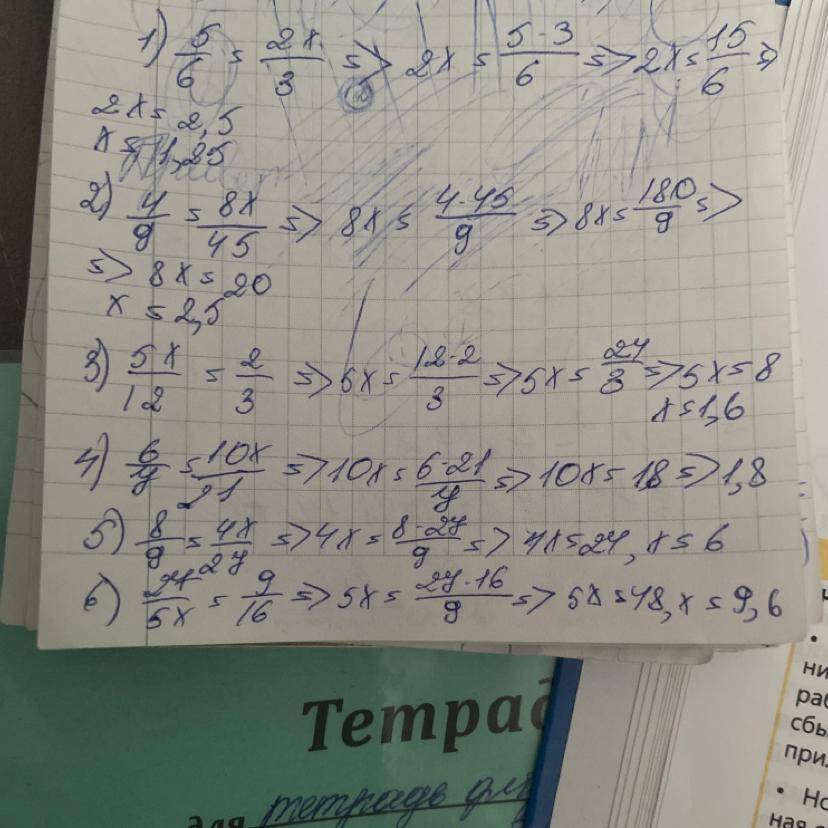 1) 5/6 = 2x/3 => 2x = 5·3/6 => 2x = 15/6 =>
2x = 2,5
x = 1,25
2) 4/9 = 8x/45 => 8x = 4·45/9 => 8x = 180/9 =>
=> 8x = 20
x = 2,5
3) 5x/12 = 2/3 => 5x = 12·2/3 => 5x = 24/3 => 5x = 8
x = 1,6
4) 6/7 = 10x/21 => 10x = 6·21/7 => 10x = 18 => 1,8
5) 8/9 = 4x/27 => 4x = 8·27/9 => 4x = 24, x = 6
6) 27/5x = 9/16 => 5x = 27·16/9 => 5x = 48, x = 9,6
Тетрад
для тетрадь для
ни
раб
сбы
при
• Но
ная